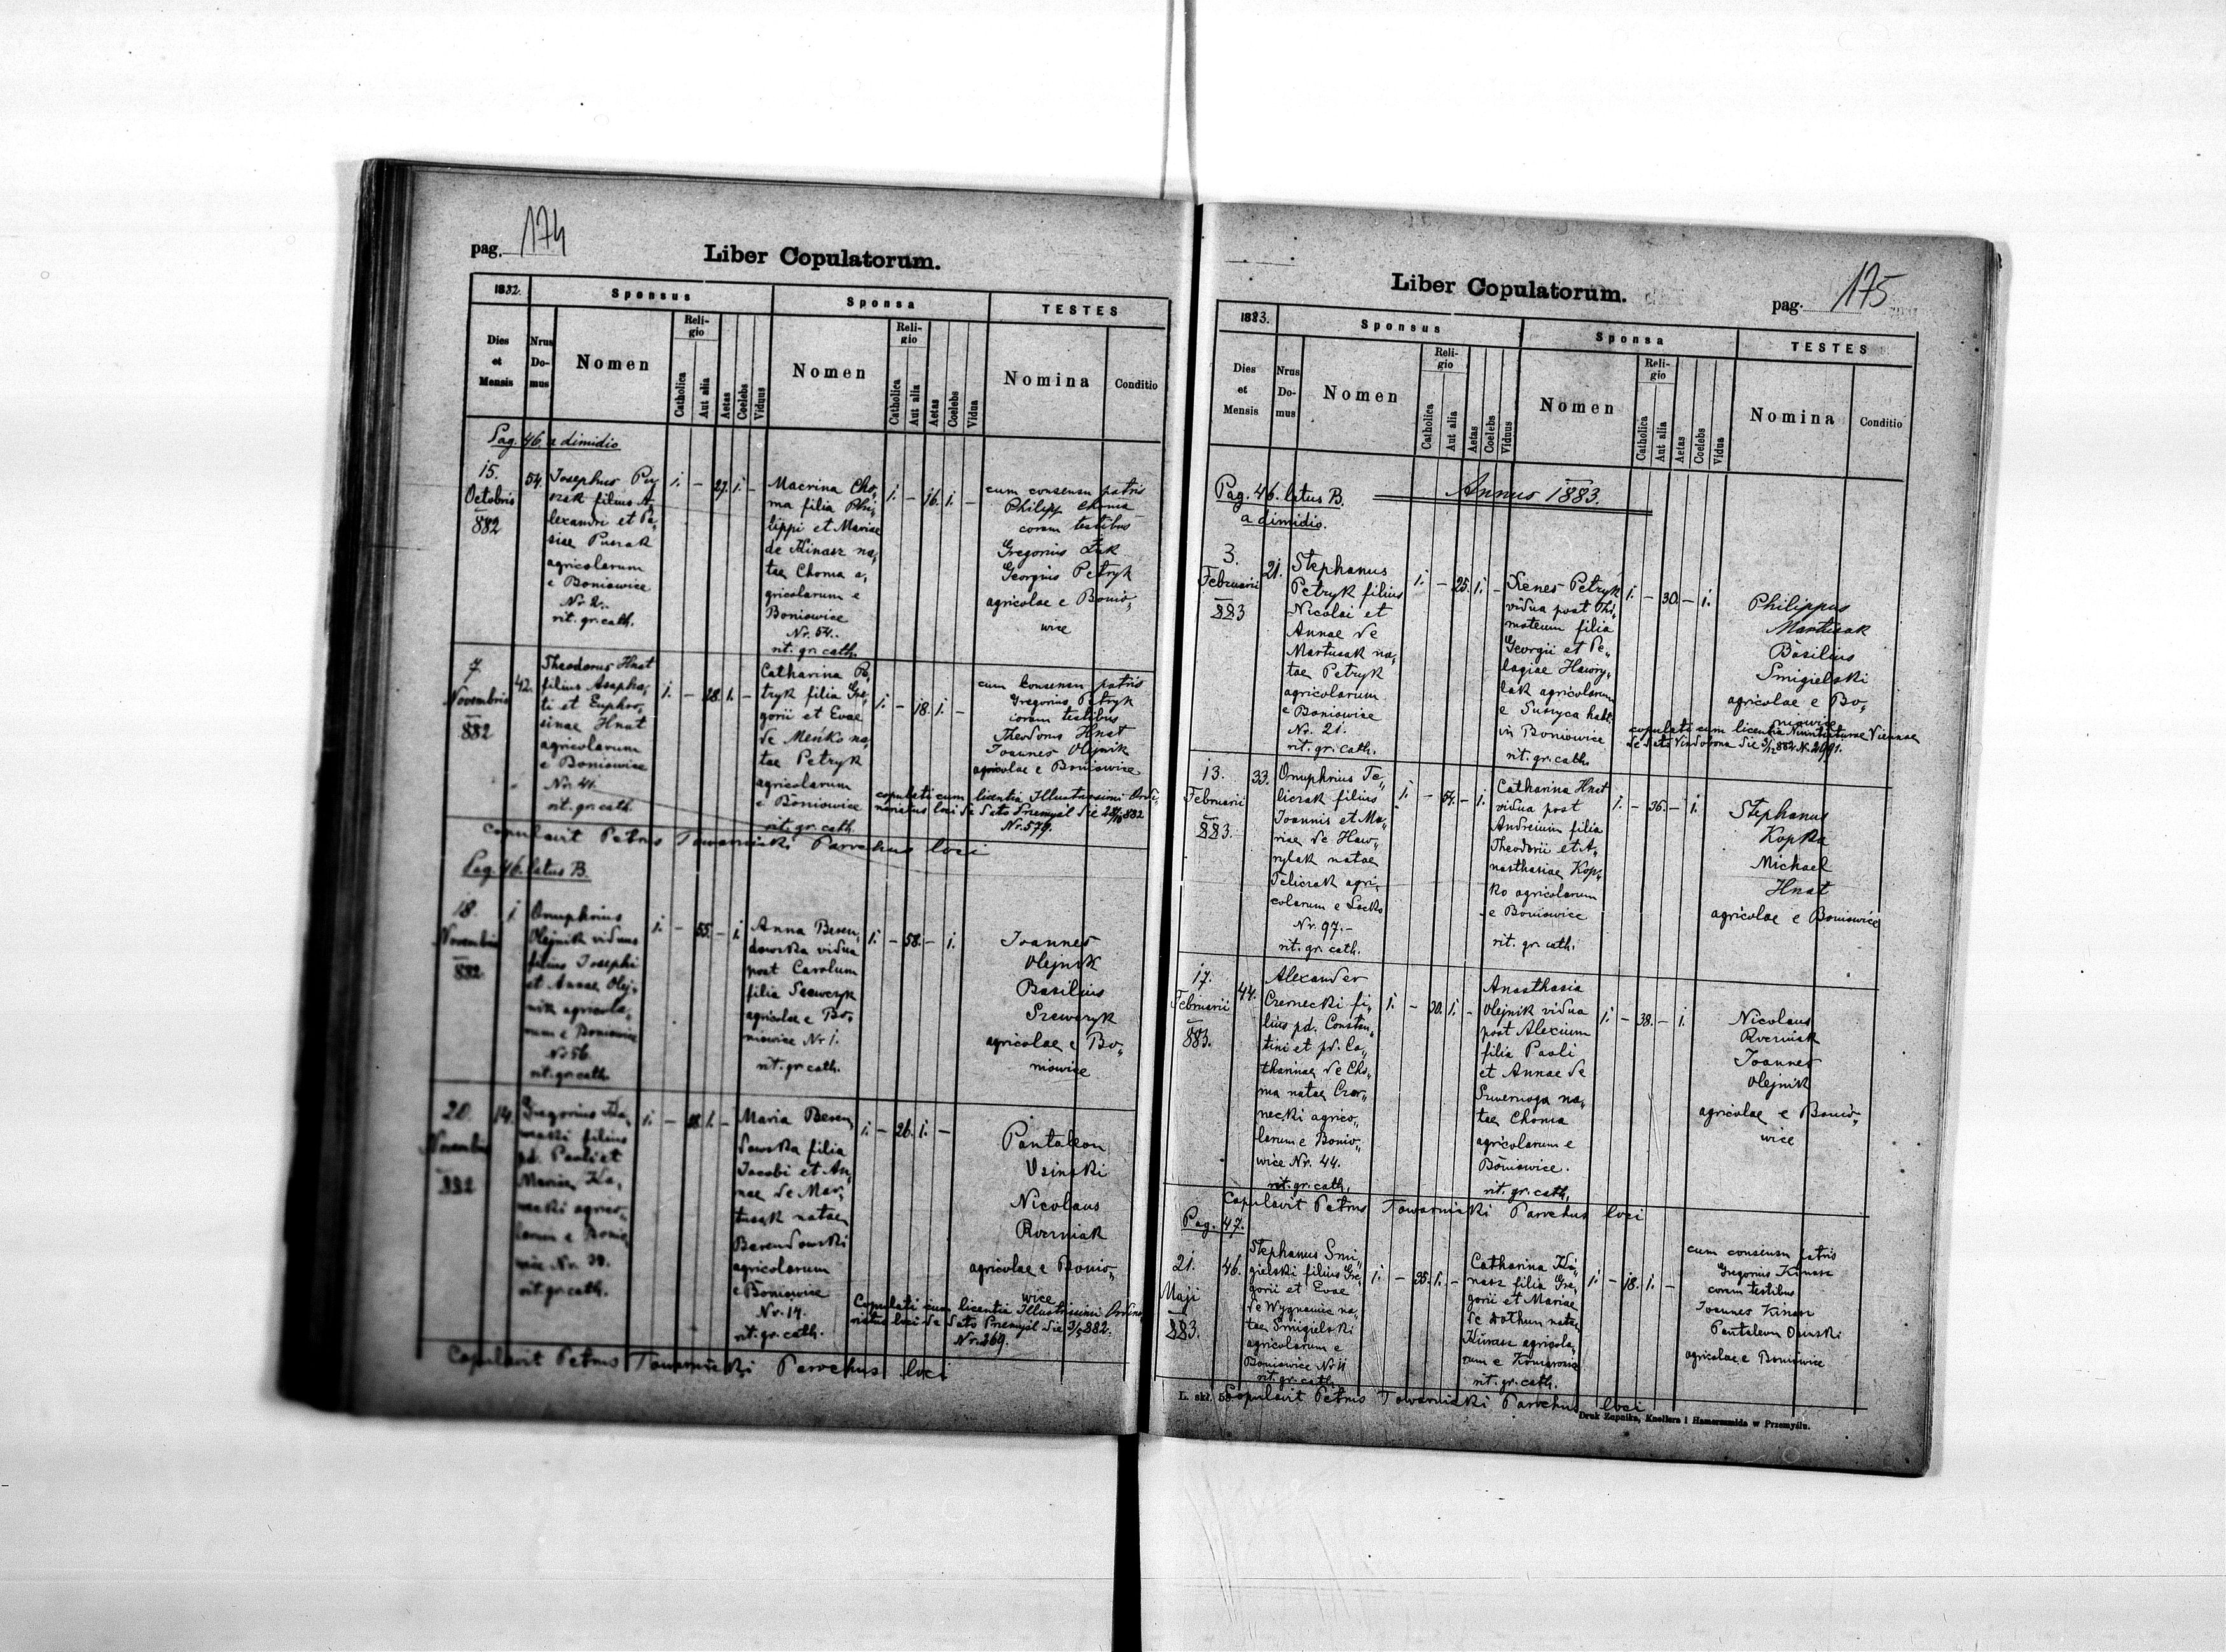 pag. 174
Liber Copulatorum.
1882.
Sponsus
Sponsa
TESTES
Dies et Mensis
Nrus Domus
Nomen
Religio
Catholica
Aut alia
Aetas
Coelebs
Viduus
Nomen
Religio
Catholica
Aut alia
Aetas
Coelebs
Vidua
Nomina
Conditio
Pag. 46. a dimidio
15.
Octobris
882
54.
Josephus
filius A„
lexandri et
agricolarum
e Boniowice
Nr 2.
rit. gr. cath.
1. — 27. 1. —
Macrina Cho„
ma filia Phi„
lippi et Mariae
de Kinasz na„
tae Choma a„
gricolarum e
Boniowice
Nr. 54.
rit. gr. cath.
1. — 16. 1. —
cum consensu patris
Philipp Choma
coram testibus
Gregorius Żuk
Georgius Petryk
agricolae e Bonio„
wice
7
Novembris
882
42.
Theodorus Hnat
filius Asapha„
ti et Euphro„
sinae Hnat
agricolarum
e Boniowice
Nr. 41.
rit. gr. cath.
1. — 28. 1. —
Catharina Pe„
tryk filia Gre„
gorii et Evae
de Meńko na„
tae Petryk
agricolarum
e Boniowice
rit. gr. cath.
1. — 18. 1. —
cum consensu patris
Gregorius Petryk
coram testibus
Theodorus Hnat
Joannes Olejnik
agricolae e Boniowice
copulati cum licentia Illustrissimi Ordi„
nariatus loci de dato Przemyśl die 882
Nr. 579.
Copulavit Petrus Towarnicki Parochus loci
Pag. 46. latus B.
18.
Novembris
882
1
Onuphrius
Olejnik viduus
filius Josephi
et Annae Olej„
nik agricola„
rum e Boniowice
Nr 56
rit. gr. cath.
1. — 55. — 1.
Anna Beren„
dowska vidua
post Carolum
filia Szewczyk
agricolae e Bo„
niowice Nr 1.
rit. gr. cath.
1. — 58. — 1.
Joannes
Olejnik
Basilius
Szewczyk
agricolae e Bo„
niowice
20.
Novembris
882
14.
Gregorius
filius
pd. Pauli et
Mariae
agrico„
larum e Bonio„
wice Nr. 30.
rit. gr. cath.
1. — 28. 1. —
Maria Beren„
dowska filia
Jacobi et An„
nae de Mar„
tusak natae
Berendowski
agricolarum
e Boniowice
Nr. 14.
rit. gr. cath.
1. — 26. 1. —
Pantaleon
Usinski
Nicolaus
Rverniak
agricolae e Bonio„
wice
Copulati cum licentia Illustrissimi Ordina„
riatus loci de dato Przemyśl die 3/5 882.
Nr. 369.
Copulavit Petrus Towarnicki Parochus loci
Liber Copulatorum.
pag. 175
1883.
Sponsus
Sponsa
TESTES
Dies et Mensis
Nrus Domus
Nomen
Religio
Catholica
Aut alia
Aetas
Coelebs
Viduus
Nomen
Religio
Catholica
Aut alia
Aetas
Coelebs
Vidua
Nomina
Conditio
Pag. 46. latus B.
a dimidio.
Annus 1883.
3.
Februarii
883
21.
Stephanus
Petryk filius
Nicolai et
Annae de
Martusak na„
tae Petryk
agricolarum
e Boniowice
Nr. 21.
rit. gr. cath.
1. — 25. 1. —
Xenes Petryk
vidua post Thi„
moteum filia
Georgii et Pe„
lagiae Hawry„
lak agricolarum
e Suszyca habt.
in Boniowice
rit. gr. cath.
1. — 30. — 1.
Philippus
Martusak
Basilius
Smigielski
agricolae e Bo„
niowice
copulati cum licentia Nuintiaturae Viennae
de dato Vindobona die 882 N. 2991.
13.
Februarii
883.
33.
Onuphrius Te„
liczak filius
Joannis et Ma„
riae de Haw„
rylak natae
Teliczak agri„
colarum e Lacko
Nr. 97.-
rit. gr. cath.
1. — 54. — 1.
Catharina Hnat
vidua post
Andreium filia
Theodorii et A„
nasthasiae Kop„
ko agricolarum
e Boniowice
rit. gr. cath.
1. — 36. — 1.
Stephanus
Kopka
Michael
Hnat
agricolae e Boniowice
17.
Februarii
883.
44.
Alexander
Czernecki fi„
lius pd. Constan„
tini et pd. Ca„
tharinae de Cho„
ma natae Czer„
necki agrico„
larum e Bonio„
wice Nr. 44.
rit. gr. cath.
1. — 30. 1. —
Anasthasia
Olejnik vidua
post Alexium
filia Paoli
et Annae de
Szwernoga na„
tae Choma
agricolarum e
Boniowice.
rit. gr. cath.
1. — 38. — 1.
Nicolaus
Rverniak
Joannes
Olejnik
agricolae e Bonio„
wice
Copulavit Petrus Towarnicki Parochus loci
Pag. 47.
21.
Maji
883.
46.
Stephanus Smi„
gielski filius Gre„
gorii et Evae
de Wygnanie na„
tae Smigielski
agricolarum e
Boniowice Nr 11
rit. gr. cath.
1. — 25. 1. —
Catharina Ki„
nasz filia Gre„
gorii et Mariae
de Bothun natae
Kinasz agricola„
rum e
rit. gr. cath.
1. — 18. 1. —
cum consensu patris
Gregorius Kinasz
coram testibus
Joannes Kinasz
Pantaleon Osinski
agricolae e Boniowice
Copulavit Petrus Towarnicki Parochus loci
L. skł. 58
Druk Żupnika, Knollera i Hamerszmida w Przemyślu.